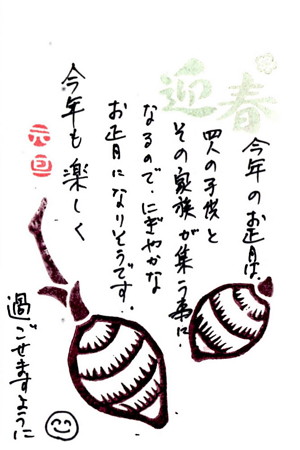 迎春
今年のお正月は、
四人の子供と
その家族が集う事に
なるので、にぎやかな
お正月になりそうです。
今年も楽しく
過ごせますように
元旦